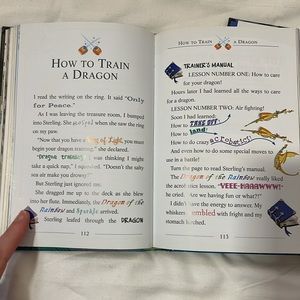 HOW TO TRAIN
A DRAGON
I read the writing on the ring. It said "Only
for Peace."
As I was leaving the treasure room, I bumped
into Sterling. She gasped when she saw the ring
on my paw.
"Now that you have a Ring of Light, you must
begin your dragon training," she declared.
"Dragon training? I was thinking I might
take a quick nap," I squeaked. "Doesn't the salty
sea air make you drowsy?"
But Sterling just ignored me.
She dragged me up to the deck as she blew
into her flute. Immediately, the Dragon of the
Rainbow and Sparkle arrived.
Sterling leafed through the DRAGON
112
HOW TO TRAIN A DRAGON
TRAINER'S MANUAL
LESSON NUMBER ONE: How to care
for your dragon!
Hours later I had learned all the ways to care
for a dragon.
LESSON NUMBER TWO: Air fighting!
Soon I had learned:
How to TAKE OFF!
How to land!
How to do crazy acrobatics!
And even how to do some special moves to
use in a battle!
Sterling turned the page to read
the acrobatics lesson. "YEEE-HAAAWWW!"
he cried. "Are we having fun or what?"
I didn't have the energy to answer. My
whiskers trembled with fright and my stomach
lurched.
113